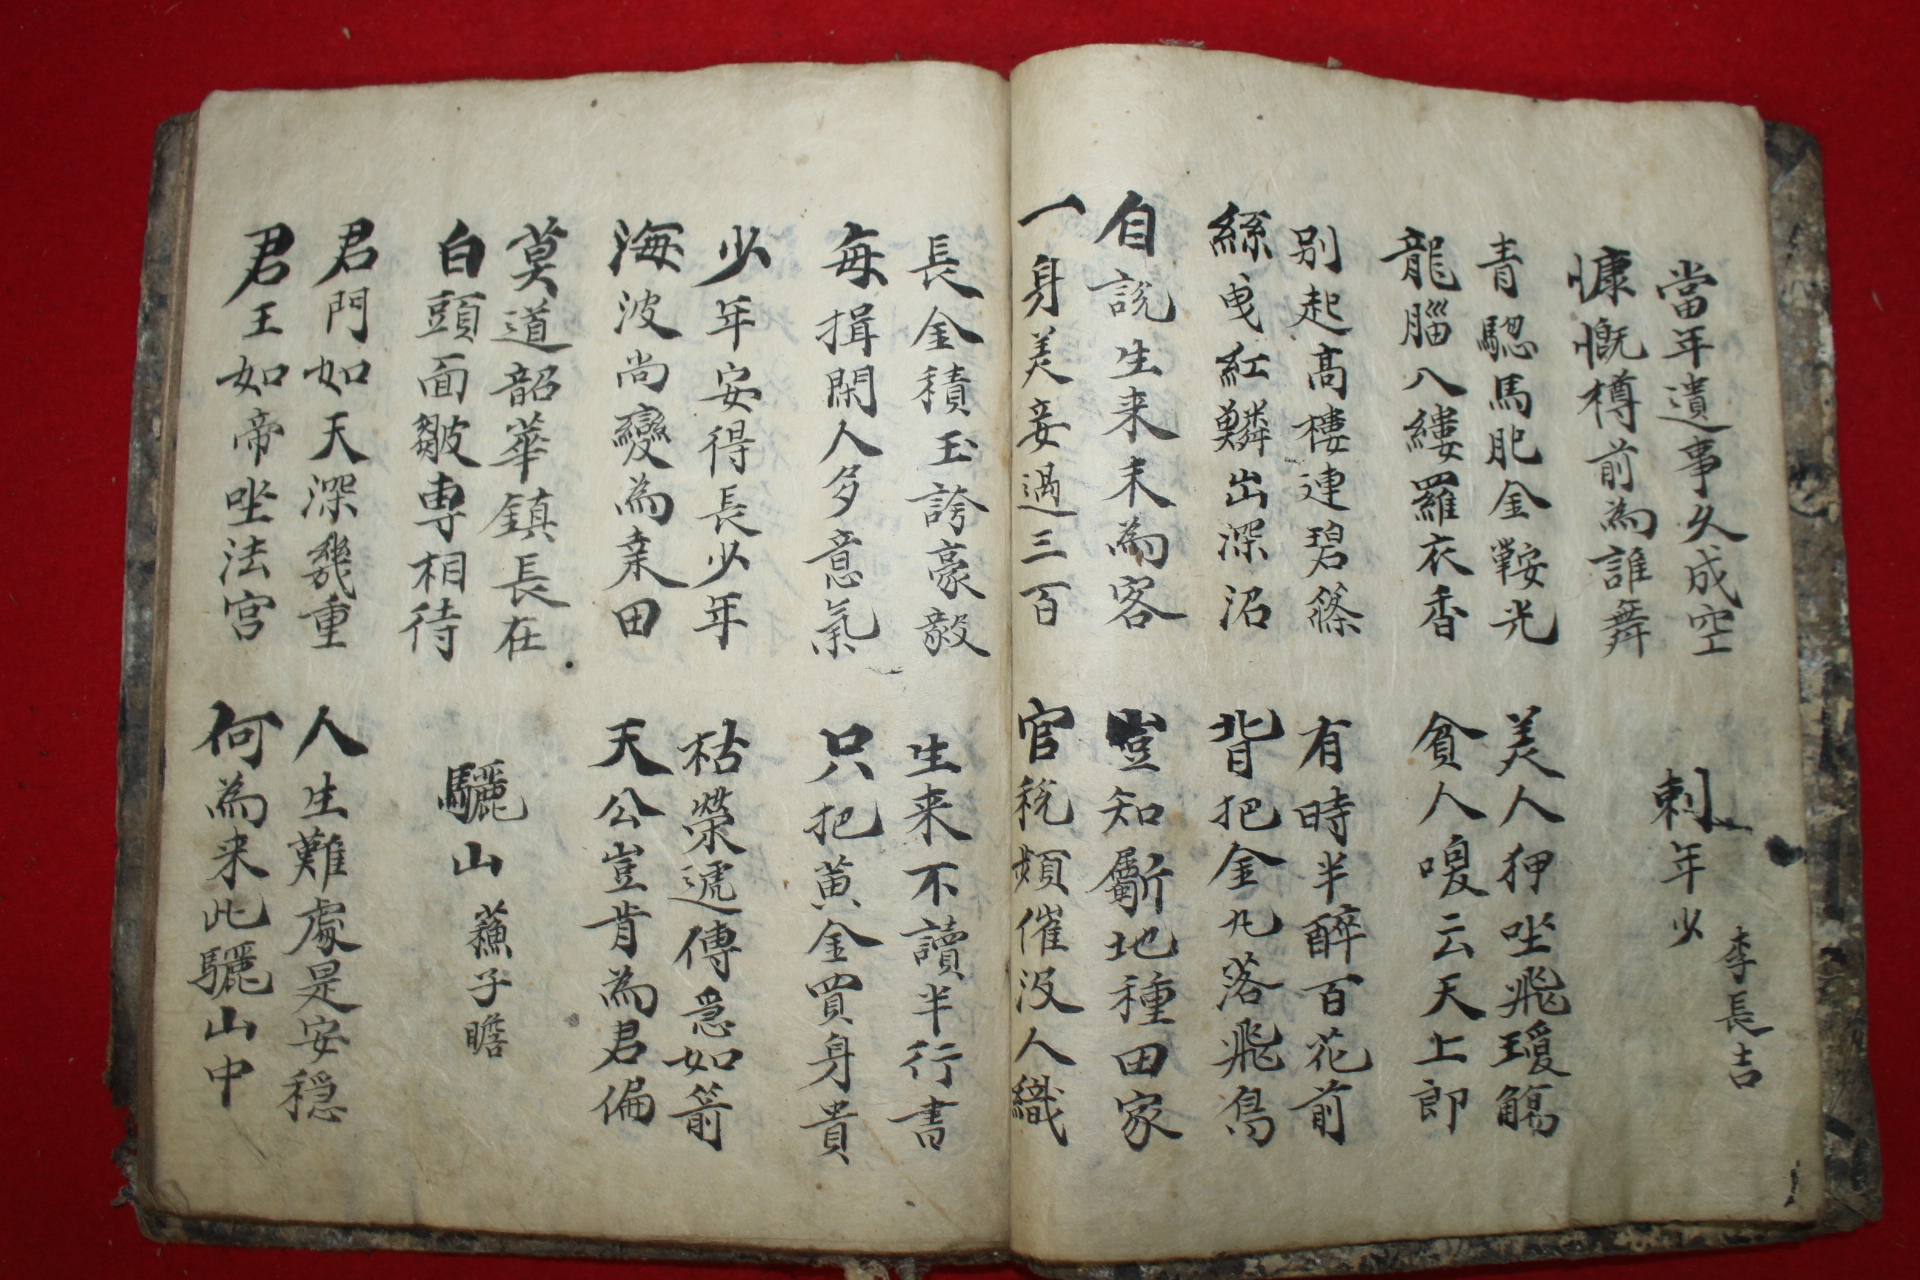 當年遺事久成空
慷慨樽前為誰舞
刺年少
李長吉
青驄馬肥金鞍光
龍腦八縷羅衣香
美人狎坐飛瓊觴
貧人喚云天上郎
别起高樓連碧篠
絲曳紅鱗出深沼
有時半醉百花前
背把金丸落飛鳥
自說生来未為客
一身美妾過三百
豈知斸地種田家
官稅頻催沒人織
長金積玉誇豪毅
每揖閑人多意氣
生来不讀半行書
只把黄金買身貴
少年安得長少年
海波尚變為桒田
枯榮遞傳急如箭
天公豈肯為君偏
莫道韶華鎮長在
白頭面皺專相待
驪山
蘓子瞻
君門如天深幾重
君王如帝坐法宮
人生難處是安穏
何為来此驪山中